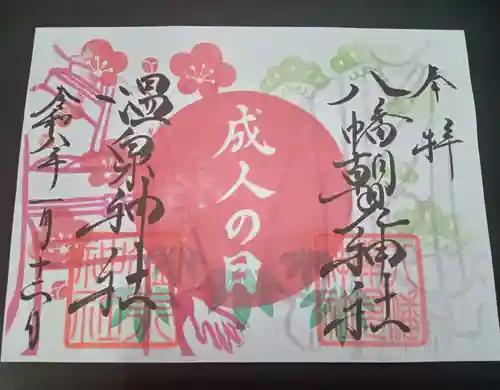 奉拝
八幡朝見神社
成人の日
温泉神社
令和八年一月十二日